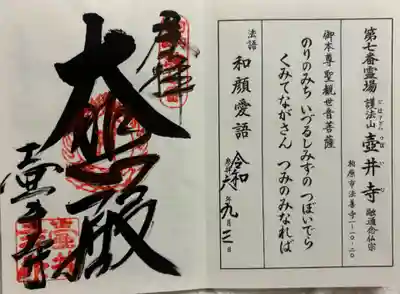 第七番霊場 護法山 壺井寺 融通念仏宗
ごほうざん つぼいじ
柏原市法善寺一-一〇-二〇
御本尊聖観世音菩薩
のりのみち いづるしみずの つぼいでら
くみてながさん つみのみなれば
法語 和顔愛語
令和六年九月三日
奉拝
大悲殿
壺井寺